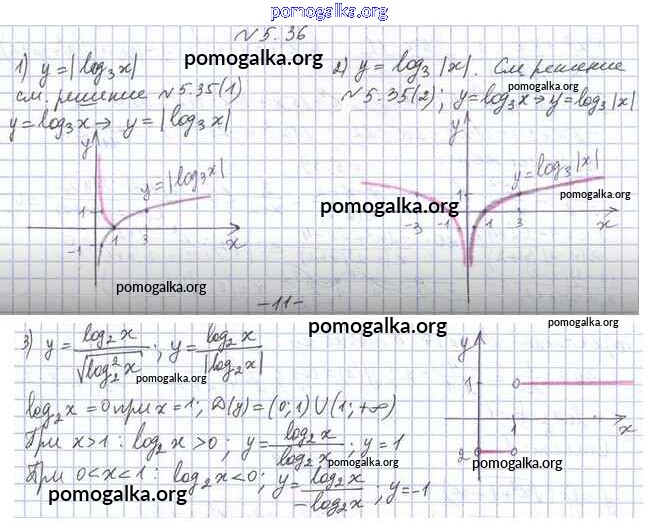 pomogalka.org
№ 5.36
1) y = |log₃x|
см. решение № 5.35(1)
y = log₃x ⇒ y = |log₃x|
pomogalka.org
2) y = log₃|x|. См. решение
№ 5.35(2); y = log₃x ⇒ y = log₃|x|
pomogalka.org
y
y = |log₃x|
1
-1
1
3
x
pomogalka.org
y
y = log₃|x|
1
-3
-1
1
3
x
pomogalka.org
pomogalka.org
-11-
pomogalka.org
pomogalka.org
3) y = log₂x / √(log₂²x) ; y = log₂x / |log₂x|
pomogalka.org
log₂x = 0 при x = 1; D(y) = (0; 1) ∪ (1; +∞)
При x > 1 : log₂x > 0; y = log₂x / log₂x ; y = 1
При 0 < x < 1 : log₂x < 0; y = log₂x / -log₂x ; y = -1
pomogalka.org
pomogalka.org
y
1
1
x
2
pomogalka.org